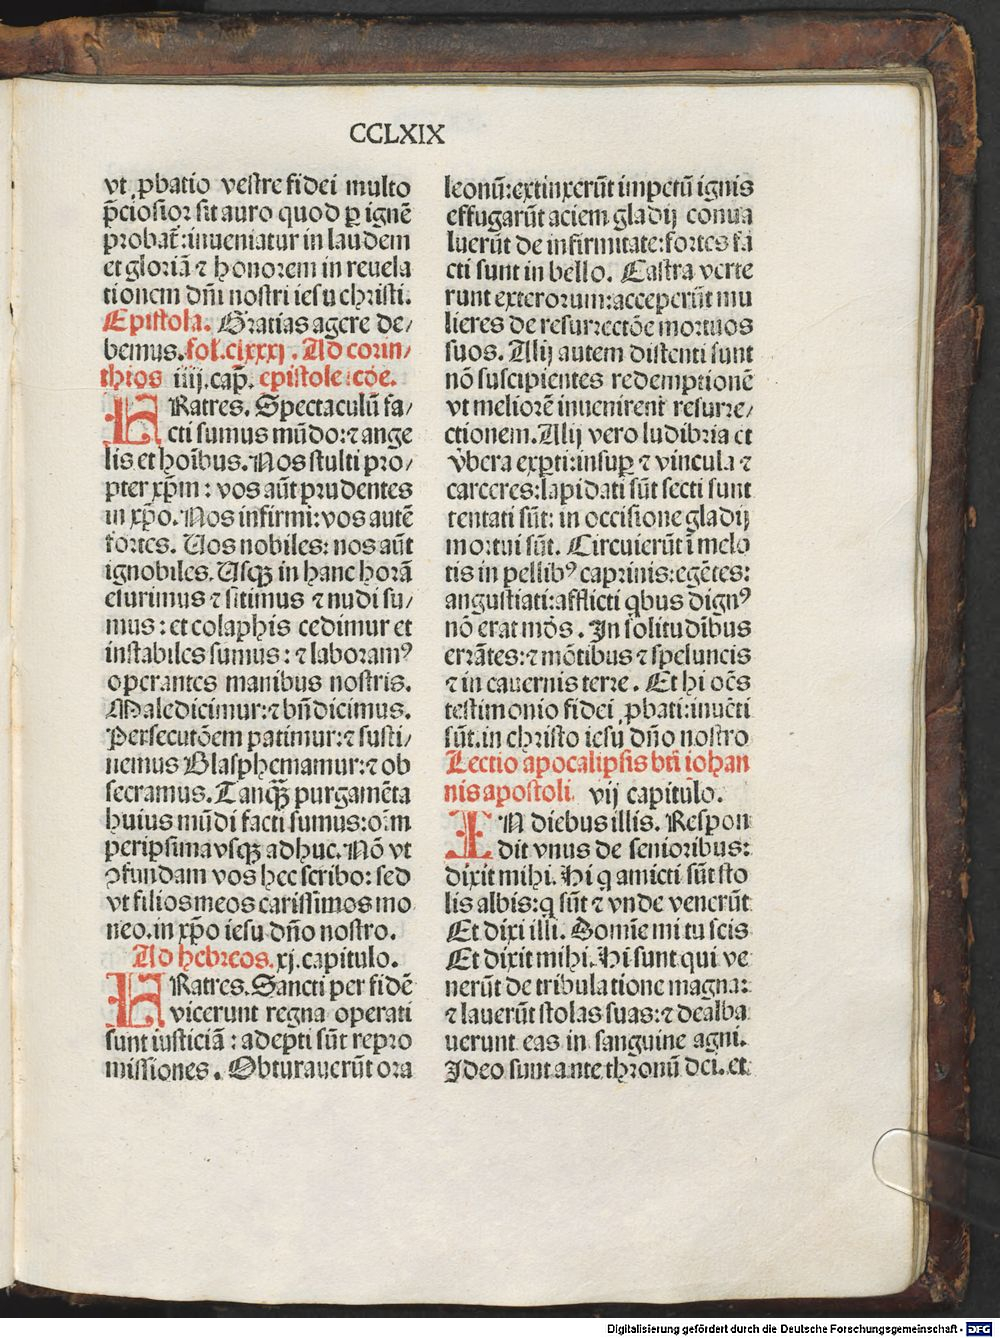 CCLXIX
vt ꝓbatio vestre fidei multo
p̄ciosior sit auro quod ꝑ ignē
probat᷑: inueniatur in laudem
et gloriā ⁊ honorem in reuela
tionem dn̄i nostri iesu christi.
Epistola. Gratias agere de/
bemus. fol. clxxxj. Ad corin/
thios iiij. cap̄. epistole .cōe.
FRatres. Spectaculū fa/
cti sumus mūdo: ⁊ ange
lis et hoībus. Nos stulti pro/
pter xp̄m: vos aūt prudentes
in xp̄o. Nos infirmi: vos autē
fortes. Uos nobiles: nos aūt
ignobiles. Usqꝫ in hanc horā
esurimus ⁊ sitimus ⁊ nudi su/
mus: et colaphis cedimur et
instabiles sumus: ⁊ laboramꝰ
operantes manibus nostris.
Maledicimur: ⁊ bn̄dicimus.
Persecutōem patimur: ⁊ susti/
nemus Blasphemamur: ⁊ ob
secramus. Tanqꝫ̄ purgamēta
huius mūdi facti sumus: oīm
peripsima vsqꝫ adhuc. Nō vt
ꝯfundam vos hec scribo: sed
vt filios meos carissimos mo
neo. in xp̄o iesu dn̄o nostro.
Ad hebreos. xj. capitulo.
FRatres. Sancti per fidē
vicerunt regna operati
sunt iusticiā: adepti sūt repro
missiones. Obturauerūt ora
leonū: extinxerūt impetū ignis
effugarūt aciem gladij conua
luerūt de infirmitate: fortes fa
cti sunt in bello. Castra verte
runt exterorum: acceperūt mu
lieres de resurrectōe mortuos
suos. Alij autem distenti sunt
nō suscipientes redemptionē
vt meliorē inuenirent resurre/
ctionem. Alij vero ludibria et
v̓bera exꝑti: insuꝑ ⁊ vincula ⁊
carceres: lapidati sūt secti sunt
tentati sūt: in occisione gladij
mortui sūt. Circuierūt ī melo
tis in pellibꝰ caprinis: egētes:
angustiati: afflicti qbus dignꝰ
nō erat mōs. In solitudībus
errātes: ⁊ mōtibus ⁊ speluncis
⁊ in cauernis terre. Et hi oēs
testimonio fidei ꝓbati: inuēti
sūt. in christo iesu dn̄o nostro
Lectio apocalipsis bt̄i iohan
nis apostoli. vij capitulo.
IN diebus illis. Respon
dit vnus de senioribus:
dixit mihi. Hi q amicti sūt sto
lis albis: q sūt ⁊ vnde venerūt
Et dixi illi. Domīe mi tu scis
Et dixit mihi. Hi sunt qui ve
nerūt de tribulatione magna:
⁊ lauerūt stolas suas: ⁊ dealba
uerunt eas in sanguine agni.
Ideo sunt ante thronū dei. et
Digitalisierung gefördert durch die Deutsche Forschungsgemeinschaft - DFG